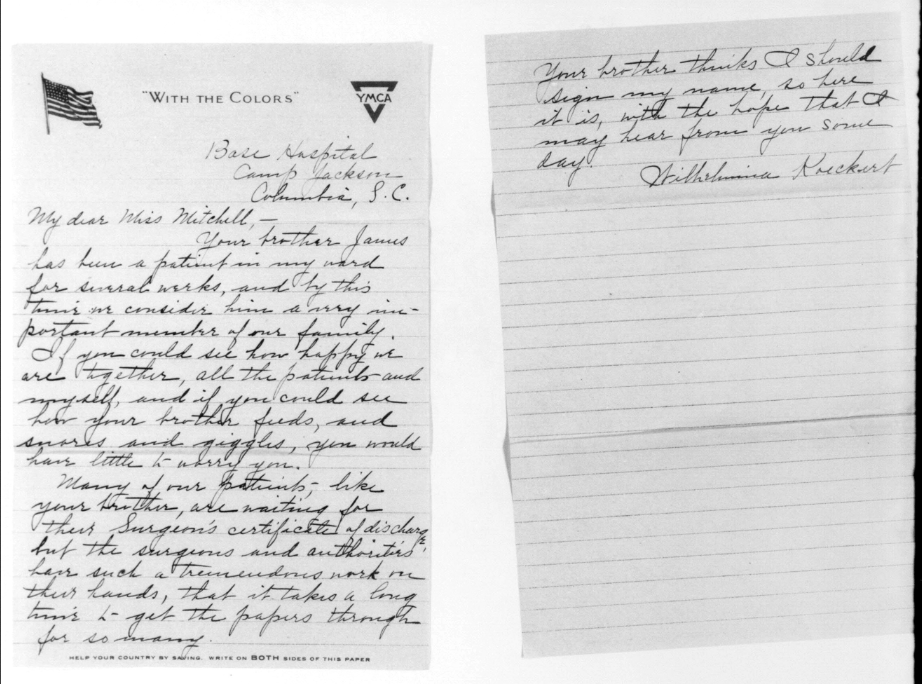 "WITH THE COLORS"
YMCA
Base Hospital
Camp Jackson
Columbia, S.C.
My dear Miss Mitchell,—
Your brother James
has been a patient in my ward
for several weeks, and by this
time we consider him a very im-
portant member of our family.
If you could see how happy we
are together, all the patients and
myself, and if you could see
how your brother feeds, and
snores and giggles, you would
have little to worry you.
Many of our patients, like
your brother, are waiting for
their Surgeon's certificate of discharge,
but the surgeons and authorities
have such a tremendous work on
their hands, that it takes a long
time to get the papers through
for so many.
HELP YOUR COUNTRY BY SAVING. WRITE ON BOTH SIDES OF THIS PAPER
Your brother thinks I should
sign my name, so here
it is, with the hope that I
may hear from you some
day.
Wilhelmina Roeckert